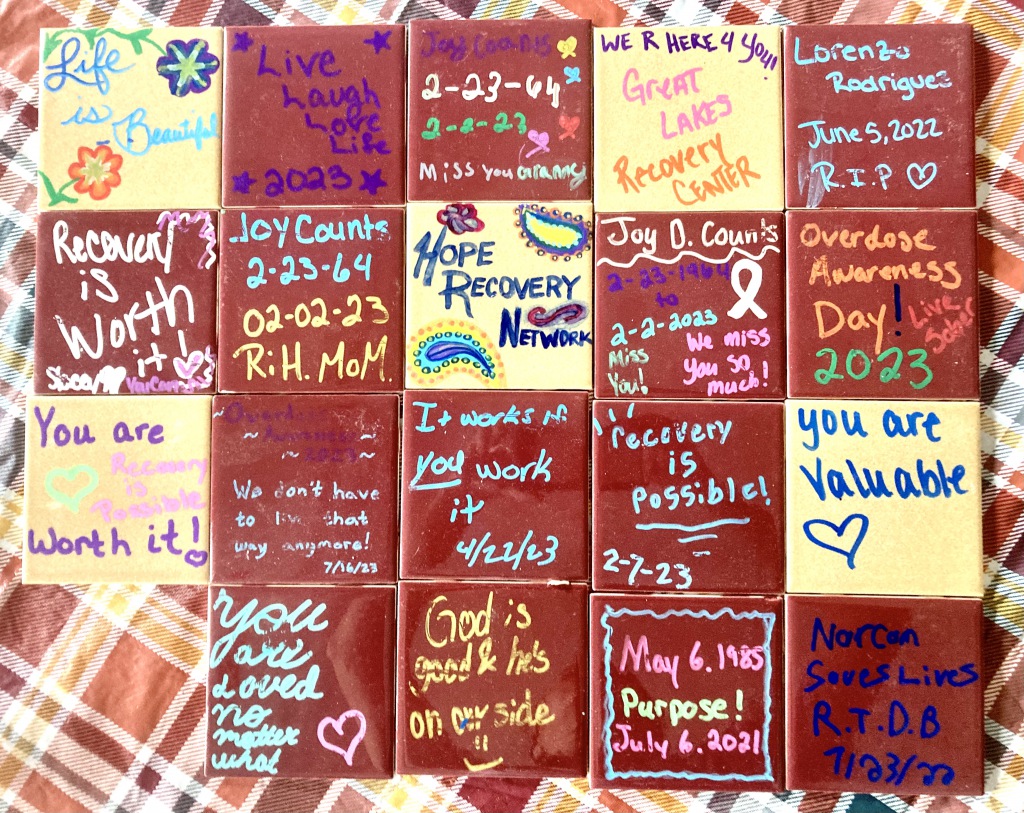 Life
is
Beautiful
Live
Laugh
Love
Life
2023
Joy Counts
2-23-64
2-2-23
Miss you Granny
WE R HERE 4 YOU!
GREAT
LAKES
Recovery
CENTER
Lorenzo
Rodriguez
June 5, 2022
R.I.P
Recovery
is
Worth
it!
Joy Counts
2-23-64
02-02-23
R.i.H. MoM.
HOPE
RECOVERY
NETWORK
Joy D. Counts
2-23-1964
to
2-2-2023
Miss
You!
We miss
you so
much!
Overdose
Awareness
Day!
Live
Sober
2023
You are
Recovery
is
Possible
Worth it!
~Overdose
~Awareness~
~2023~
We don't have
to live that
way anymore!
7/16/23
It works if
you work
it
4/22/23
recovery
is
possible!
2-7-23
you are
valuable
You
are
Loved
no
matter
what
God is
good & he's
on our side
May 6.1985
Purpose!
July 6.2021
Norcan
Saves Lives
R.T.D.B
7/23/22